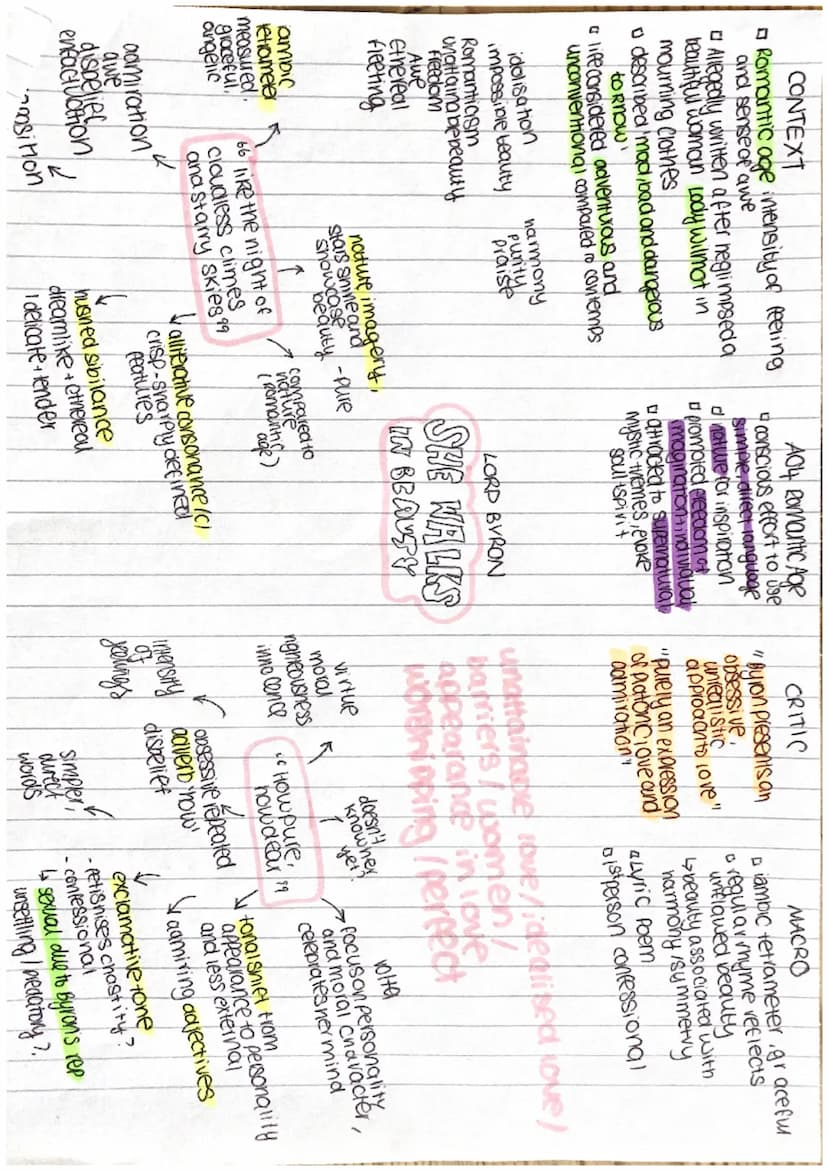 CONTEXT
Romantic age intensity of feeling
and sense of awe
Allegedly written after he glimpsed a
beautiful woman Lady Wilmot in
mourning clothes
described 'mad bad and dangerous
to know'
life considered adventurous and
unconventional compared to contemps
AO4 romantic Age
conscious effort to use
simple, direct language
nature for inspiration
promoted freedom of
imagination + individual
attracted to supernatural,
mystic themes, evoke
soul + spirit
CRITIC
"Byron presents an
obsessive,
unrealistic
approach to love"
"purely an expression
of platonic love and
admiration"
MACRO
iambic tetrameter, graceful
regular rhyme reflects
unflawed beauty
↳ beauty associated with
harmony/symmetry
Lyric poem
1st person confessional
idolisation
impossible beauty
Romanticism
unattainable beauty
freedom
Awe
Ethereal
fleeting
harmony
purity
praise
LORD BYRON
SHE WALKS
IN BEAUTY
unattainable love/idealised love/
barriers/women/
appearance in love
worshipping/perfect
nature imagery,
stars simile and
showcase
beauty - pure
compared to
nature
(romantic
age)
iambic
tetrameter
measured,
graceful,
angelic
"like the night of
cloudless climes
and starry skies"
admiration
awe
disbelief
infatuation
alliterative consonance (c)
crisp - sharply defined
features
hushed sibilance
dreamlike + ethereal
delicate + tender
doesn't
know her
yet.
volta
focus on personality
and moral character,
celebrates her mind
virtue
moral
righteousness
innocence
"How pure,
how dear"
tonal shift from
appearance to personality
and less external
admiring adjectives
obsessive repeated
adverb 'how'
disbelief
intensity
of
feelings
simple,
direct
words
exclamative tone
- fetishises chastity?
- confessional
↳ sexual due to Byron's rep
unsettling / predatory?